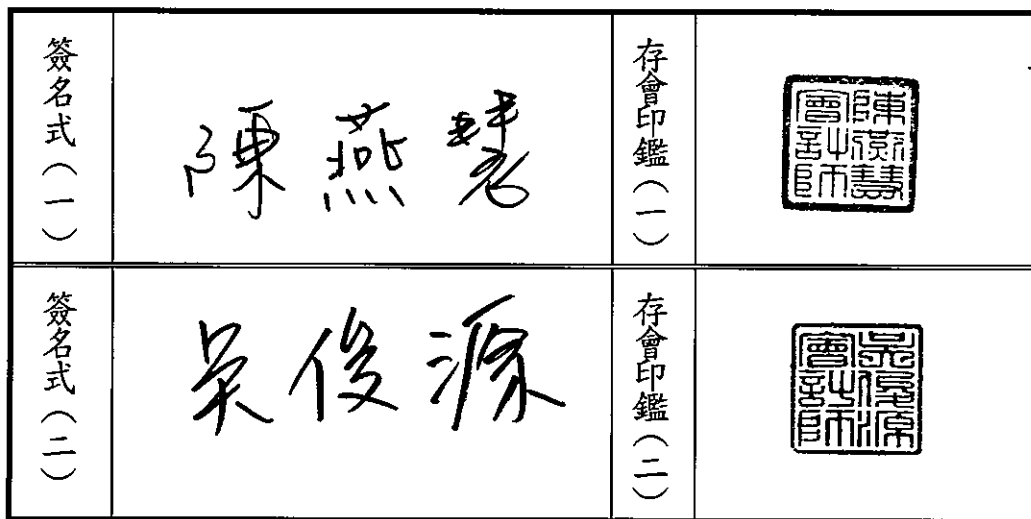 簽名式（一）
陳燕慧
存會印鑑（一）
陳燕慧
會計師
簽名式（二）
吳俊源
存會印鑑（二）
吳俊源
會計師